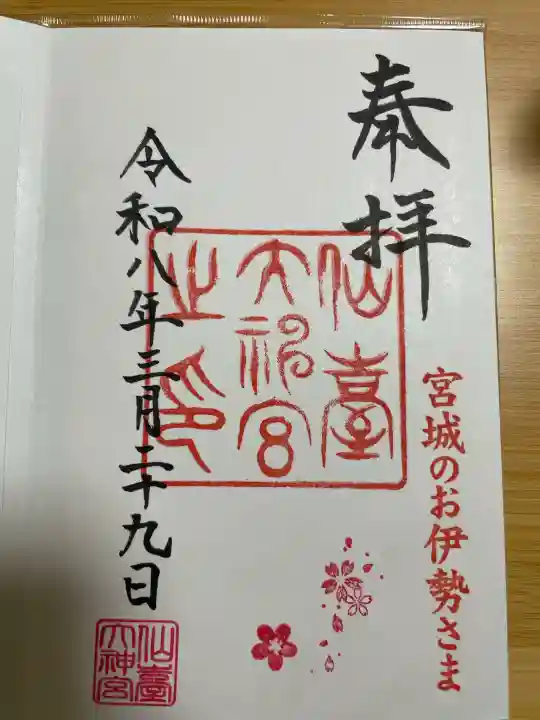 奉拝
宮城のお伊勢さま
仙臺
大神宮
之印
令和八年三月二十九日
仙臺
大神宮